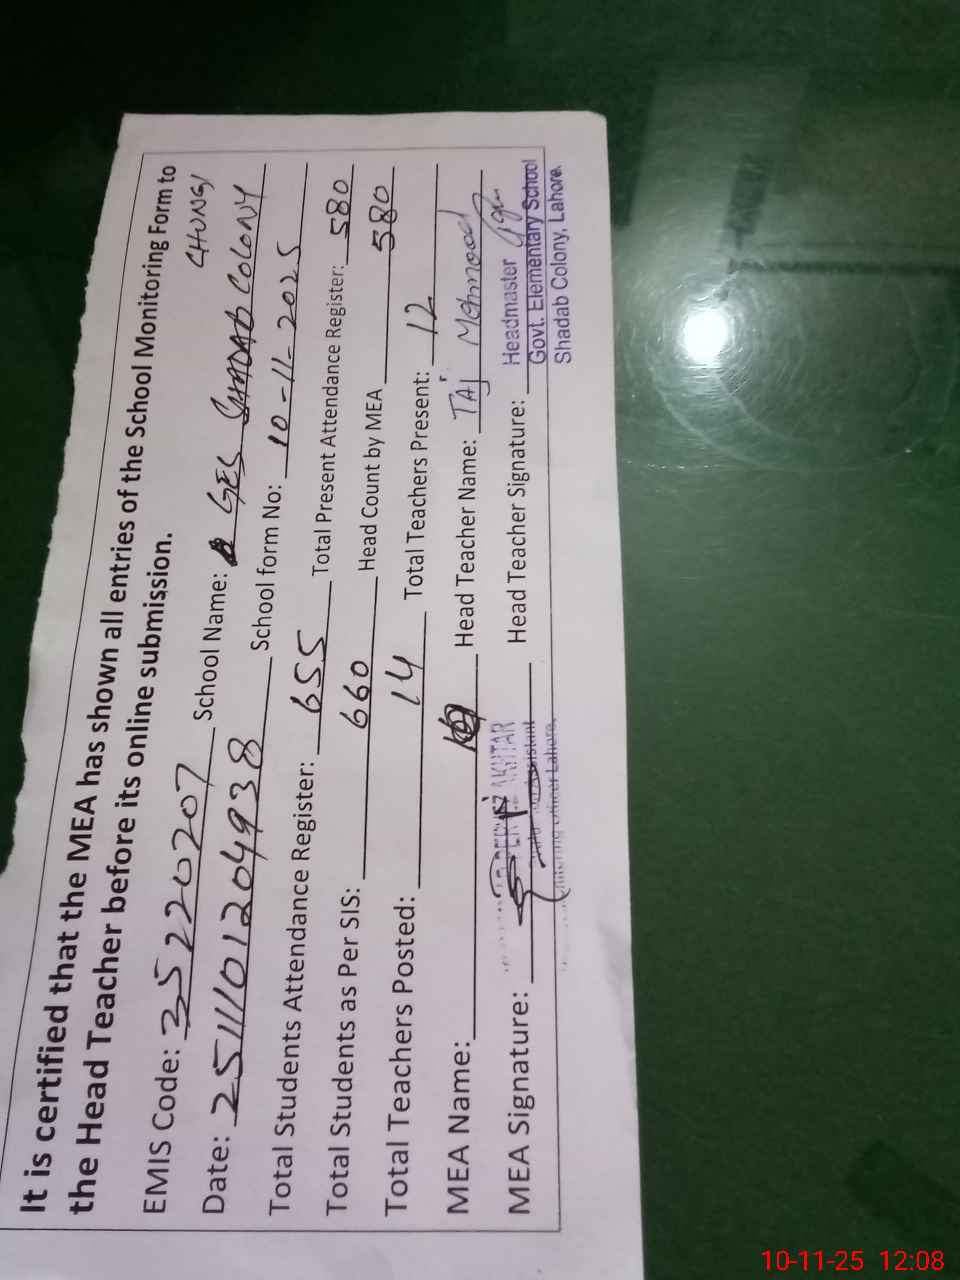 It is certified that the MEA has shown all entries of the School Monitoring Form to
the Head Teacher before its online submission.
CHUNG
EMIS Code: 35220207 School Name: GES SHADAB COLONY
Date: 251110120493 8 School form No: 10-11-2025
Total Students Attendance Register: 655 Total Present Attendance Register: 580
Total Students as Per SIS: 660 Head Count by MEA 580
Total Teachers Posted: 14 Total Teachers Present: 12
MEA Name: Head Teacher Name: TAJ Mehmood
MEA Signature: AKHTAR Head Teacher Signature: Headmaster
Govt. Elementary School
Shadab Colony, Lahore.
Officer Lahore.
10-11-25 12:08